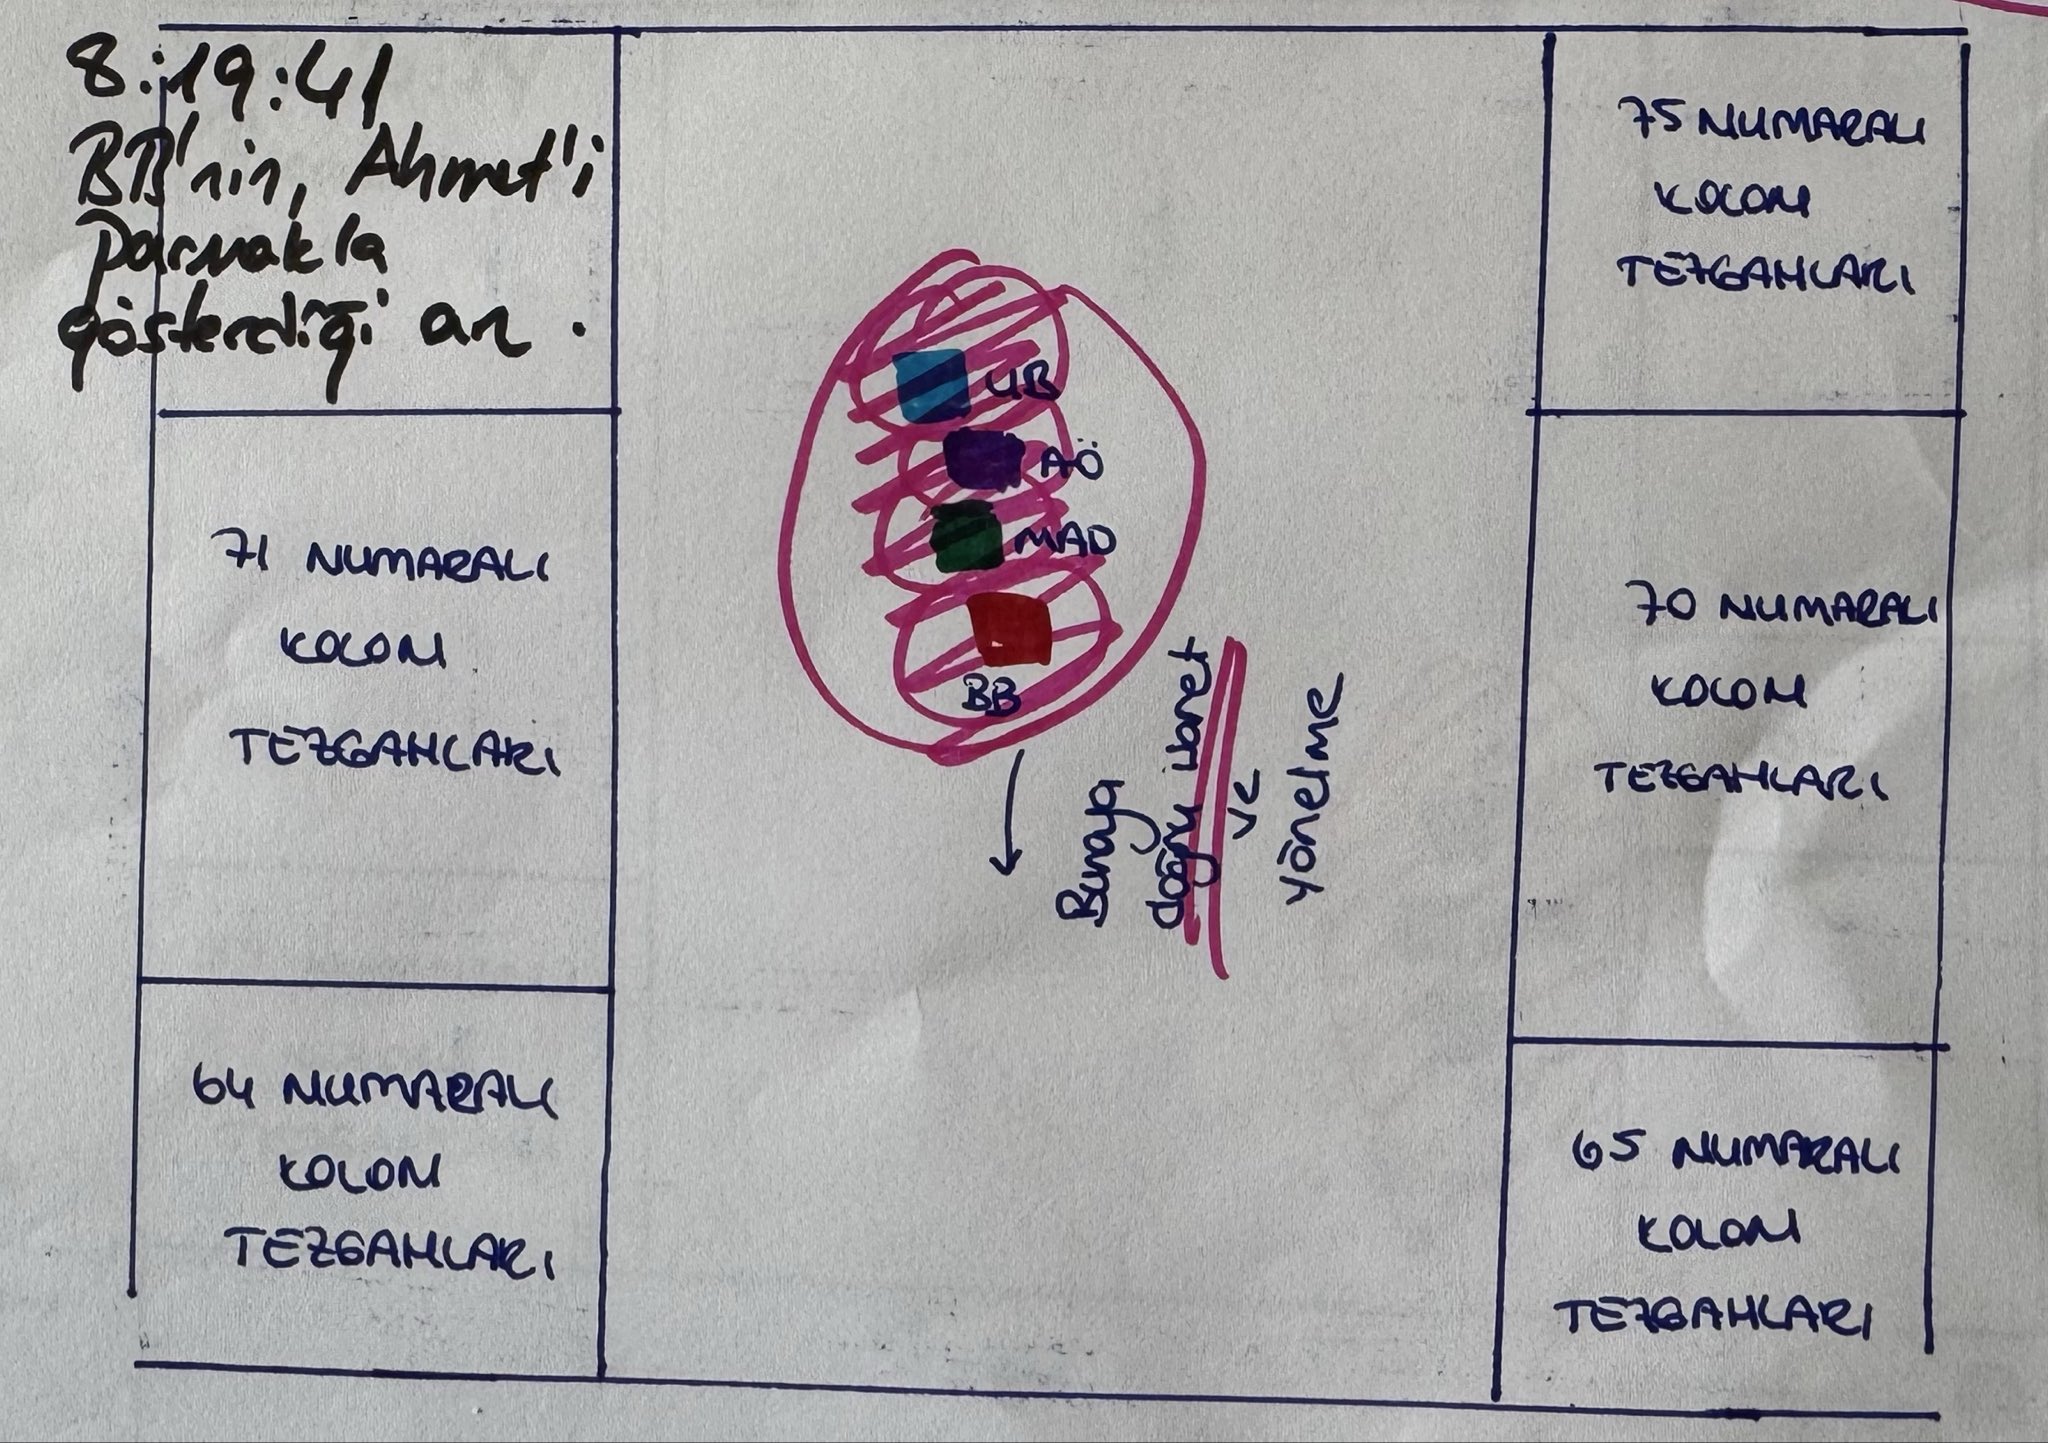 8:19:41
BB'nin, Ahmet'i
Parmakla
gösterdiği an.
75 NUMARALI
KOLON
TEZGAHLARI
UB
AÖ
MAD
BB
71 NUMARALI
KOLON
TEZGAHLARI
70 NUMARALI
KOLON
TEZGAHLARI
Buraya
doğru işaret
ve
yönelme
64 NUMARALI
KOLON
TEZGAHLARI
65 NUMARALI
KOLON
TEZGAHLARI